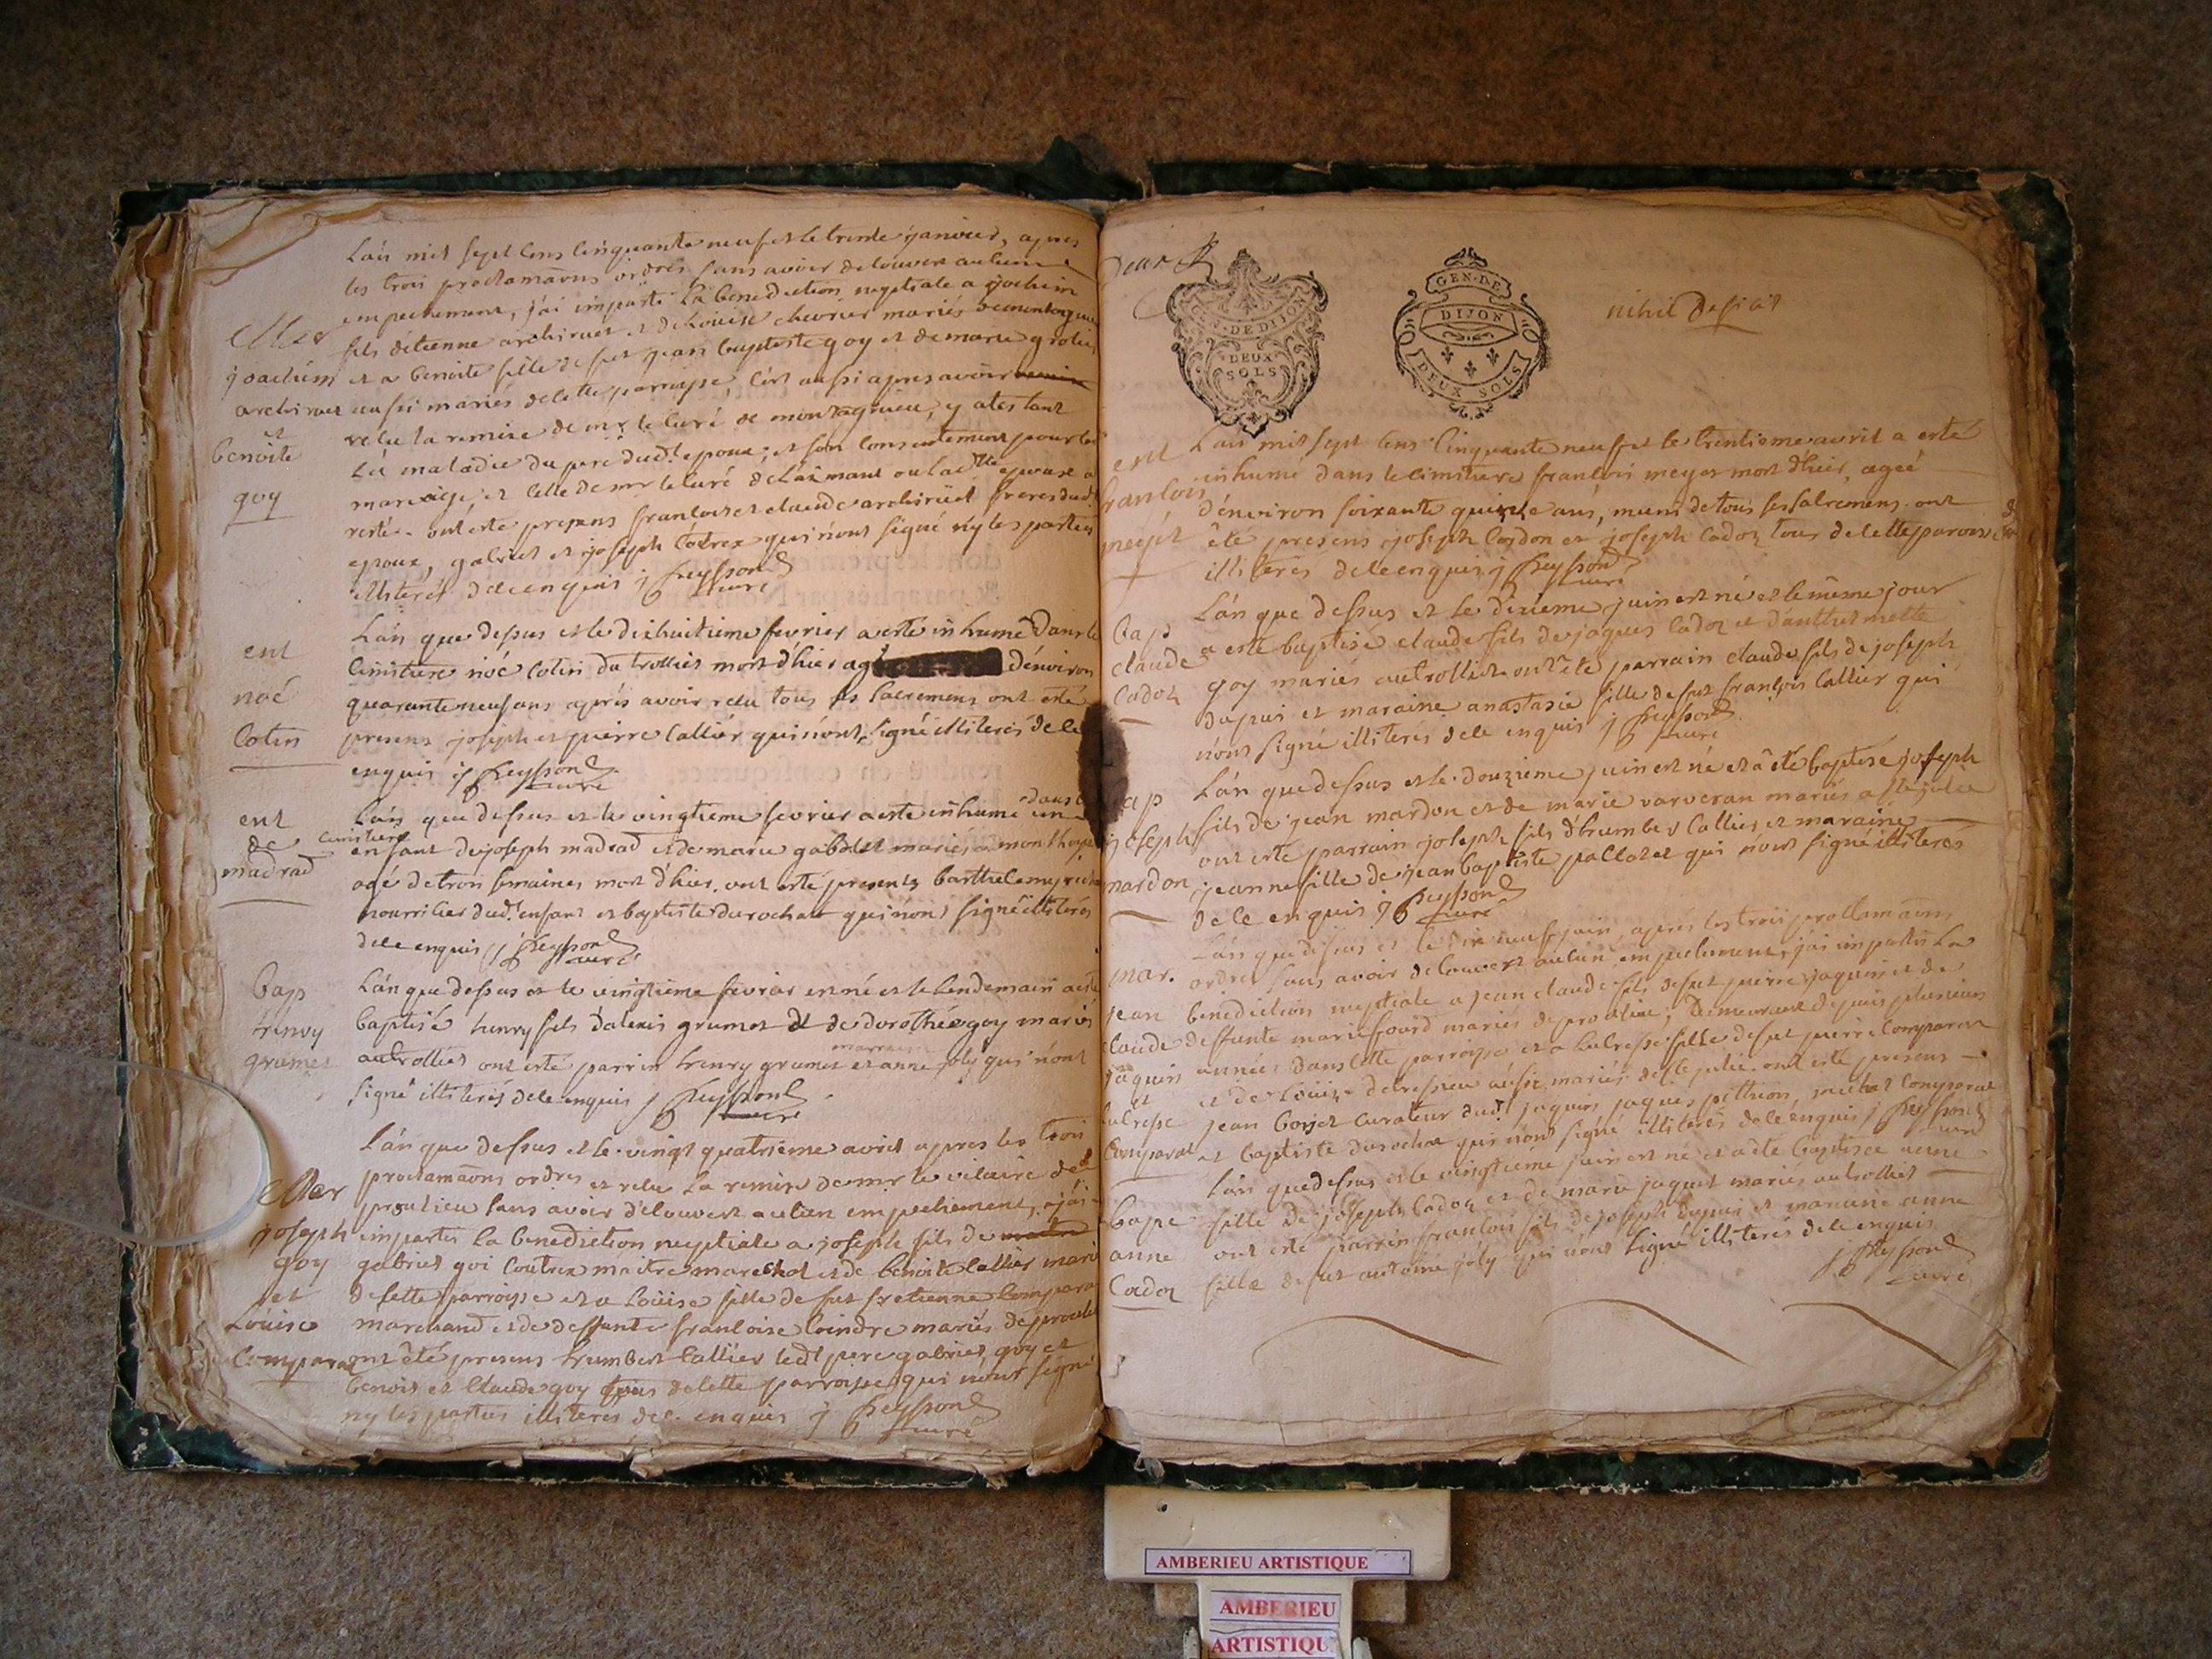 Lán mil sept cens cinquante neuf et le trente janvier, apres
les trois proclamaõns ordres sans avoir decouvert aucun
empechement, j'ai imparti la benediction nuptiale a joachim
fils d'étienne archiruet et de Louise chevrier mariés de montagneu
et a benoite fille de fut jean baptiste goy et de marie
aussi mariés de cette parroisse, c'est aussi apres avoir
recu la remise de mr le curé de montagnieu, y atestant
La maladie du pere dud.t epoux, et son consentement pour led
mariage, et celle de mr le curé de ou lad.tte epouse a
resté. ont éte presens francois et claude archiruet freres dud.t
epoux, gabriel et joseph qui n'ont signé ny les parties
illiterés de ce enquis j Peysson
curé
Mar
joachim
archiruet
et
benoite
goy
Lán que dessus et le dixhuitieme fevrier a esté inhumé dans le
cimitiere noé cotin du trollier mort d'hier agé d'environ
quarante neuf ans aprés avoir recu tous ses sacremens ont esté
presens joseph et pierre Callier qui n'ont signé illiterés de ce
enquis j Peysson
curé
ent
noé
Cotin
Lán que dessus et le vingtieme fevrier a esté inhumé dans le
cimitiere un
enfant de joseph madrad et de marie mariés a
agé de trois semaines mort d'hier. ont esté presents barthelemy
nourricier dud.t enfant et baptiste durochat qui n'ont signé illiterés
de ce enquis j Peysson
curé
ent
de
madrad
Lán que dessus et le vingtieme fevrier est né et le lendemain a esté
baptisé henry fils d'alexis grumet et de dorothée goy mariés
au trollier ont esté parrin henry grumet et marraine anne joly qui n'ont
signé illiterés de ce enquis j Peysson
curé
bap
henry
grumet
Lán que dessus et le vingt quatrieme avril apres les trois
proclamaõns ordres et recu la remise de mr le vicaire de
proulieu sans avoir découvert aucun empechement, j'ai
imparti la benediction nuptiale a joseph fils de
gabriel goi maitre marechal et de benoite Callier mariés
de cette parroisse et a Louise fille de fut etienne Comparat
marchand et de deffunte francoise mariés de proulieu
ont été presens humbert Callier led.t pere gabriel goy et
benoit et Claude goy tous de cette parroisse qui n'ont signé
ny les parties illiterés de ce enquis j Peysson
curé
Mar
joseph
goy
et
Louise
Comparat
GEN. DE DIJON
DEUX
SOLS
GEN. DE
DIJON
DEUX SOLS
nihil
Lán mil sept cens cinquante neuf et le trentieme avril a esté
inhumé dans le cimitiere francois meyet mort d'hier, ageé
d'environ soixante quinze ans, muni de tous ses sacremens. ont
été presens joseph Cordon et joseph Cadoz tous de cette parroisse
illiterés de ce enquis j Peysson
curé
ent
francois
meyet
Lán que dessus et le dixieme juin est né et le même jour
a esté baptisé claude fils de jaques Cadoz et d'anthelmette
goy mariés au trollier ont été parrain claude fils de joseph
dupuis et maraine anastasie fille de fut francois Callier qui
n'ont signé illiterés de ce enquis j Peysson
curé
bap
claude
Cadoz
Lán que dessus et le douzieme juin est né et a été baptisé joseph
fils de jean mardon et de marie varveran mariés a ste julie
ont esté parrain joseph fils d'humbert Callier et maraine
jeanne fille de jean baptiste qui n'ont signé illiterés
de ce enquis j Peysson
curé
bap
joseph
mardon
Lán que dessus et le dix neuf juin, aprés les trois proclamaõns
ordres sans avoir decouvert aucun empechement, j'ai imparti La
benediction nuptiale a jean claude fils de fut pierre jaquin et de
deffunte marie mariés de proulieu, demeurant depuis plusieurs
années dans cette parroisse et a Lucresse fille de fut pierre Comparat
et de Louise aussi mariés de ste julie ont esté presens
jean curateur dud.t jaquin jaques Comparat
et baptiste durochat qui n'ont signé illiterés de ce enquis j Peysson
curé
mar.
jean
claude
jaquin
et
lucresse
Comparat
Lán que dessus et le vingtieme juin est né et a été baptisée anne
fille de joseph Cadoz et de marie jaquet mariés au trollier
ont esté parrin francois fils de joseph dupuis et maraine anne
fille de fut antoine joly qui n'ont signé illiterés de ce enquis
j Peysson
curé
bape
anne
Cadoz
AMBERIEU ARTISTIQUE
AMBERIEU
ARTISTIQU